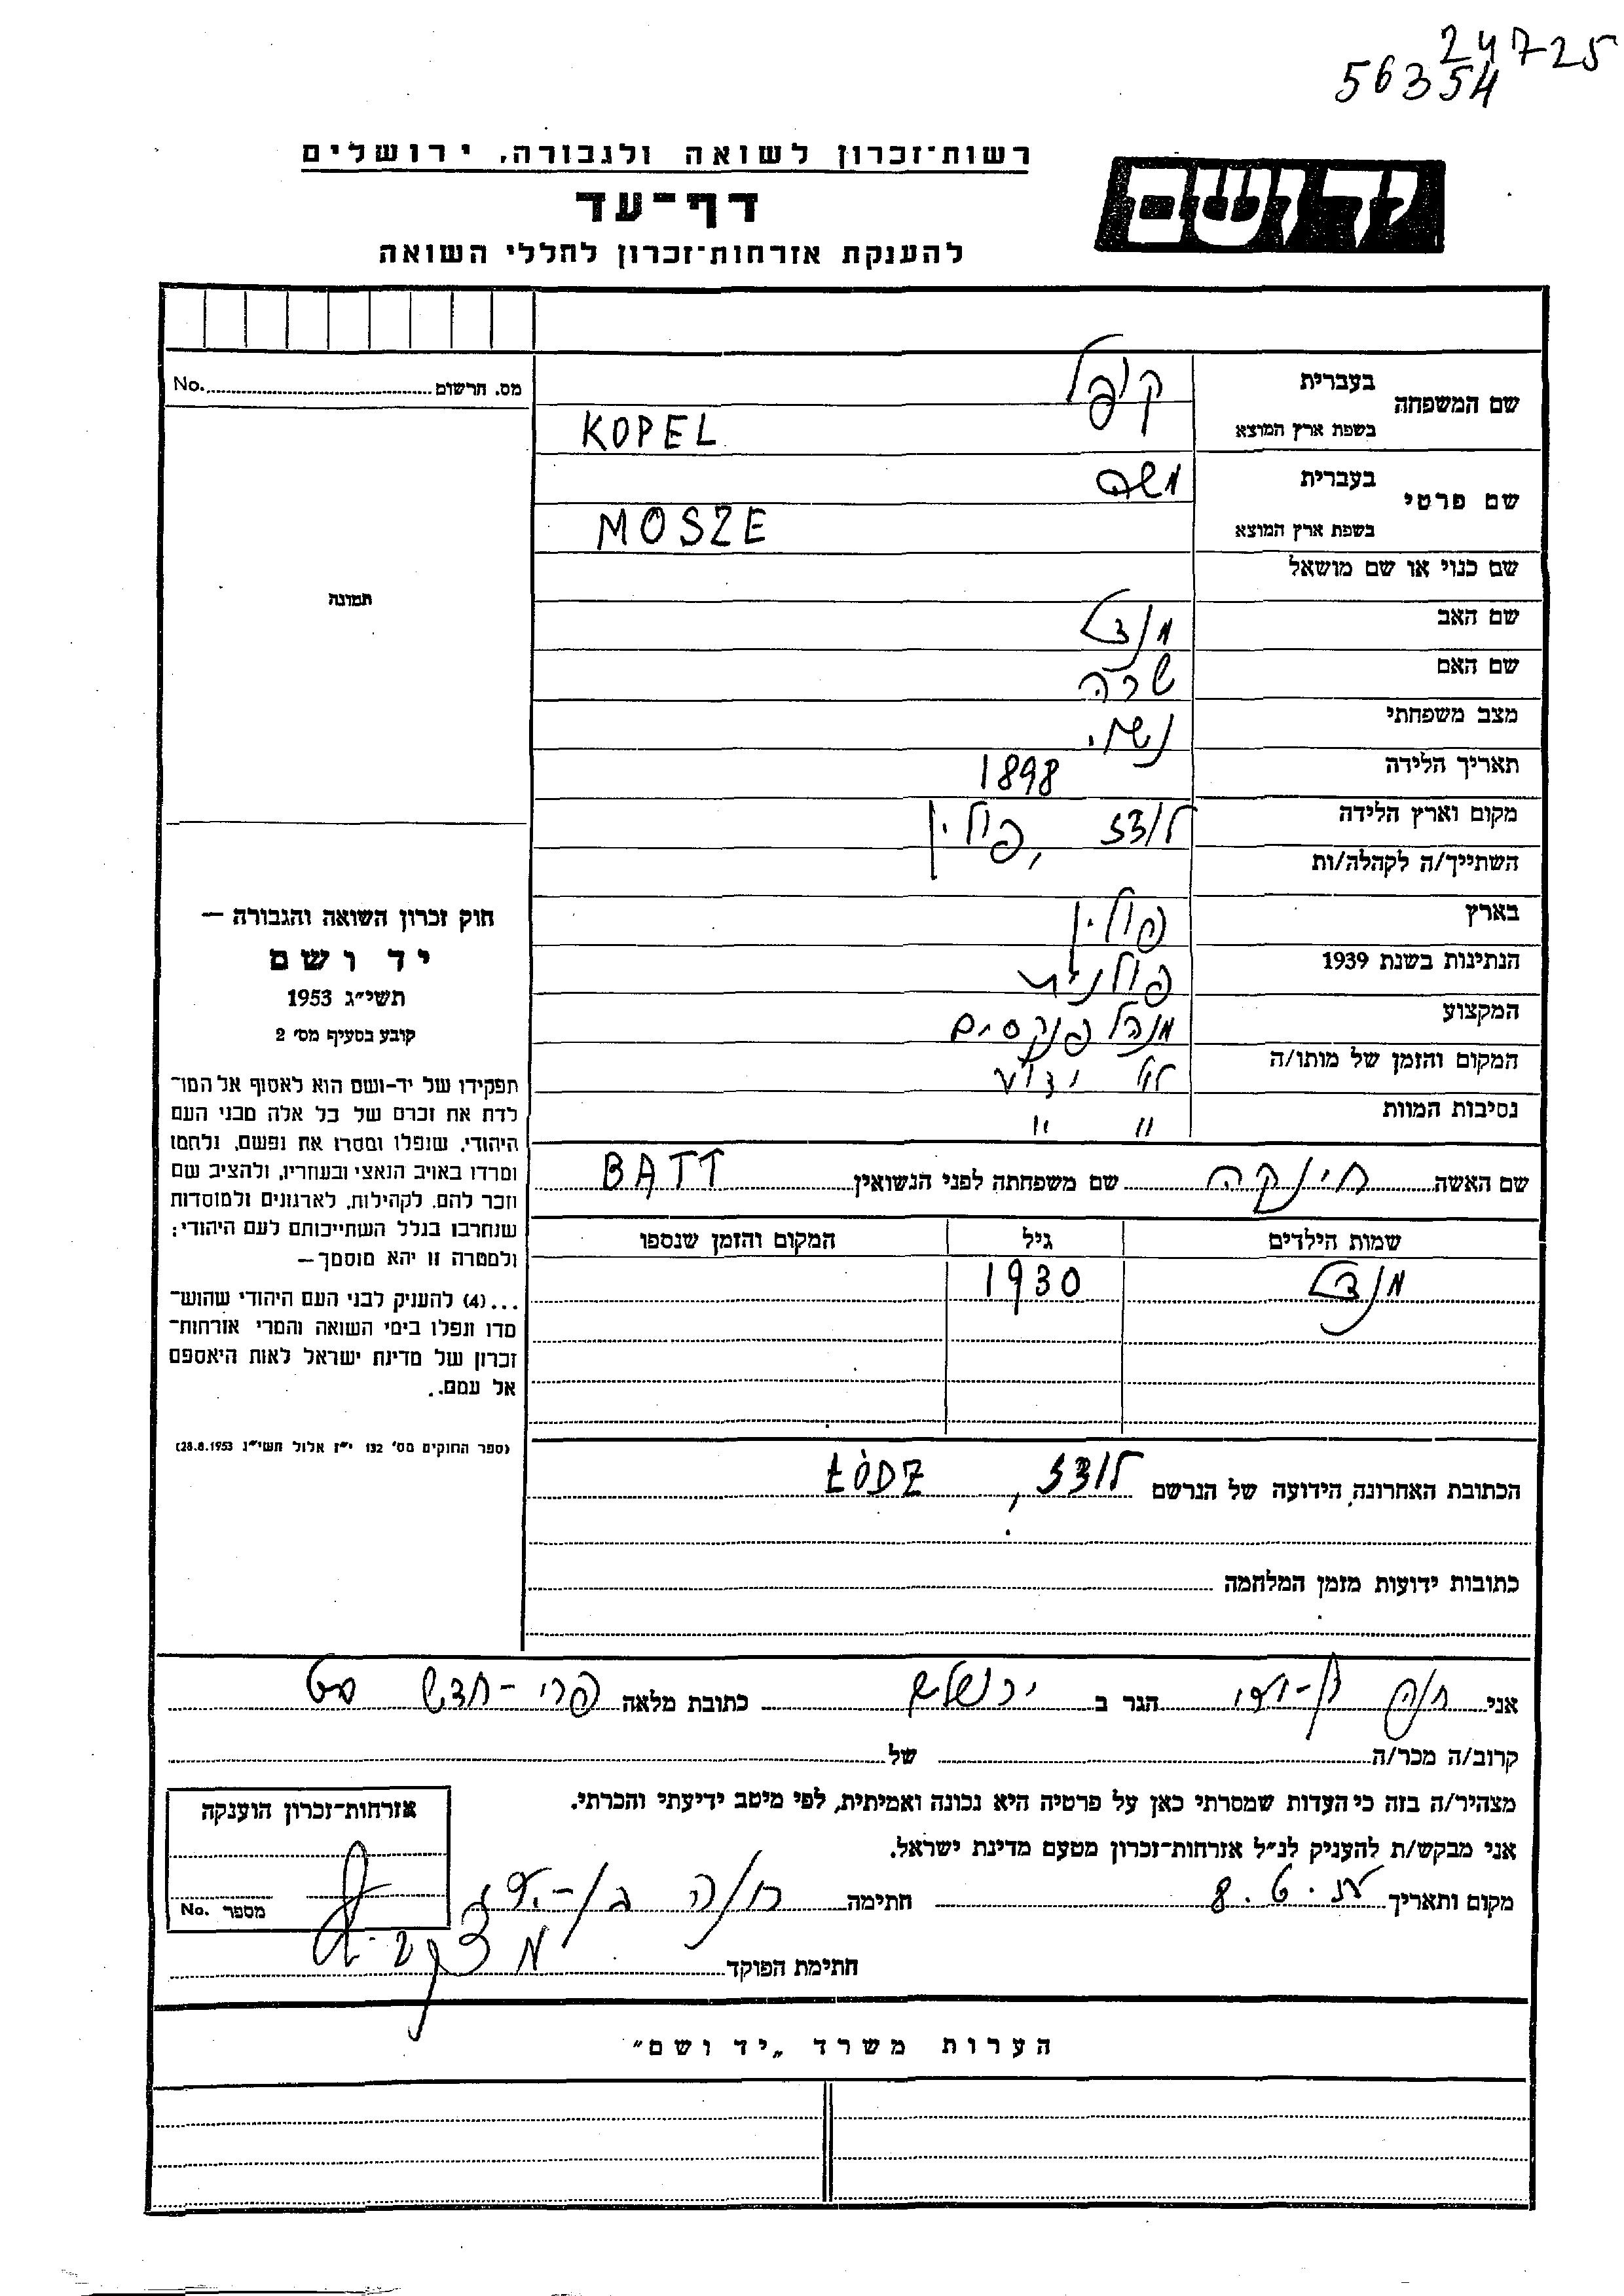 24725
56354
רשות־זכרון לשואה ולגבורה, ירושלים
יד ושם
דף־עד
להענקת אזרחות־זכרון לחללי השואה
מס. הרשום No.
שם המשפחה בעברית קופל
בשפת ארץ המוצא KOPEL
שם פרטי בעברית משה
בשפת ארץ המוצא MOSZE
שם כנוי או שם מושאל
תמונה
שם האב מנדל
שם האם שרה
מצב משפחתי נשוי
תאריך הלידה 1898
מקום וארץ הלידה לודז, פולין
השתייך/ה לקהלה/ות
בארץ פולין
הנתינות בשנת 1939 פולנית
המקצוע מנהל פנקסים
המקום והזמן של מותו/ה לא ידוע
נסיבות המוות " "
שם האשה חינקה שם משפחתה לפני הנשואין BATT
שמות הילדים גיל המקום והזמן שנספו
מנדל 1930
הכתובת האחרונה הידועה של הנרשם לודז, ŁÓDZ
כתובות ידועות מזמן המלחמה
חוק זכרון השואה והגבורה —
יד ושם
תשי״ג 1953
קובע בסעיף מס׳ 2
תפקידו של יד-ושם הוא לאסוף אל המו־
לדת את זכרם של כל אלה מבני העם
היהודי, שנפלו ומסרו את נפשם, נלחמו
ומרדו באויב הנאצי ובעוזריו, ולהציב שם
וזכר להם, לקהילות, לארגונים ולמוסדות
שנחרבו בגלל השתייכותם לעם היהודי;
ולמטרה זו יהא מוסמך —
...(4) להעניק לבני העם היהודי שהוש־
מדו ונפלו בימי השואה והמרי אזרחות־
זכרון של מדינת ישראל לאות היאספם
אל עמם.
(ספר החוקים מס׳ 132 י״ז אלול תשי״ג 28.8.1953)
אני חוה הגר ב ירושלים כתובת מלאה פרי-חדש
קרוב/ה מכר/ה של
מצהיר/ה בזה כי העדות שמסרתי כאן על פרטיה היא נכונה ואמיתית, לפי מיטב ידיעתי והכרתי.
אני מבקש/ת להעניק לנ״ל אזרחות־זכרון מטעם מדינת ישראל.
מקום ותאריך 8.6. חתימה
חתימת הפוקד
אזרחות־זכרון הוענקה
מספר No.
הערות משרד „יד ושם״